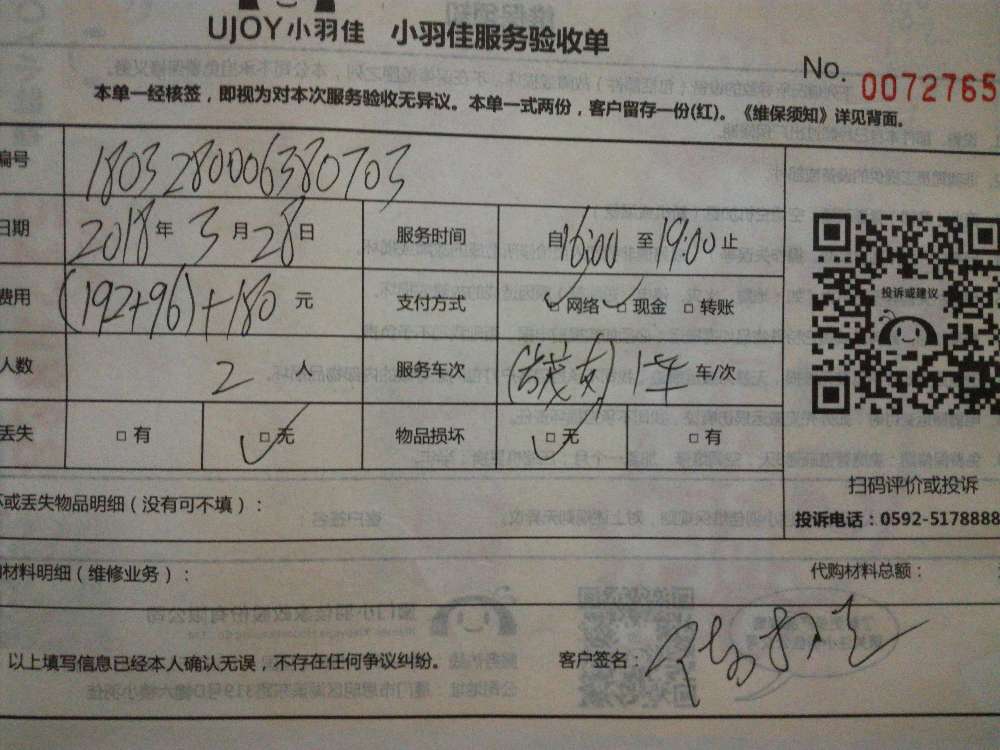 UJOY小羽佳 小羽佳服务验收单
No. 0072765
本单一经核签，即视为对本次服务验收无异议。本单一式两份，客户留存一份(红)。《维保须知》详见背面。
编号 1803280006380703
日期 2018年3月28日 服务时间 自16:00至19:00止
费用 (192+96)+180 元 支付方式 □网络 □现金 □转账
人数 2 人 服务车次 车/次
丢失 □有 □无 物品损坏 □无 □有
投诉或建议
扫码评价或投诉
投诉电话：0592-5178888
坏或丢失物品明细（没有可不填）：
材料明细（维修业务）： 代购材料总额：
以上填写信息已经本人确认无误，不存在任何争议纠纷。 客户签名：